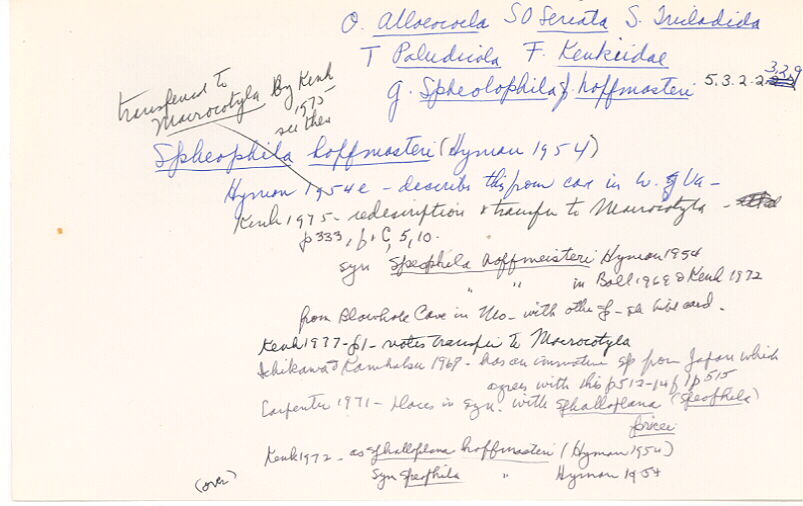 O. Alloeocoela SO Seriata S. Tricladida
T Paludicola F. Kenkiidae
g. Spheolophila f. hoffmasteri 5.3.2.2 3.2.9
transferred to
Macrocotyla By Kenk
1975
see then
Spheophila hoffmasteri (Hyman 1954)
Hyman 1954e - describes this from cave in W. Va -
Kenk 1975 - redescription & transfer to Macrocotyla -
p333, f. C, 5, 10.
syn Speophila hoffmeisteri Hyman 1954
" " in Ball 1969 & Kenk 1972
from Blowhole Cave in Mo - with other f - card.
Kenk 1977 - p1 - notes transfer to Macrocotyla
Ichikawa & Kawakatsu 1967 - has an immature sp from Japan which
agrees with this p512-14 f 1 p515
Carpenter 1971 - places in syn. with Sphalloplana (Speophila)
pricei
Kenk 1972 - as Sphalloplana hoffmasteri (Hyman 1954)
syn Speophila " Hyman 1954
(over)